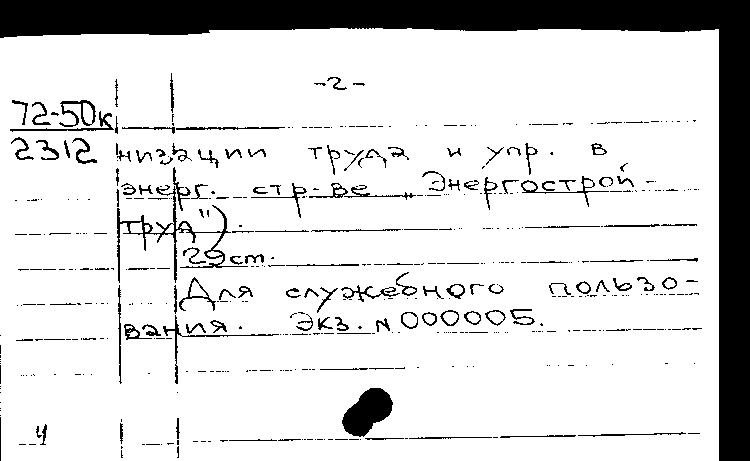 -2-
72-50к
2312
низации труда и упр. в
энерг. стр-ве „Энергострой-
труд").
29 ст.
Для служебного пользо-
вания. Экз. N 000005.
ч